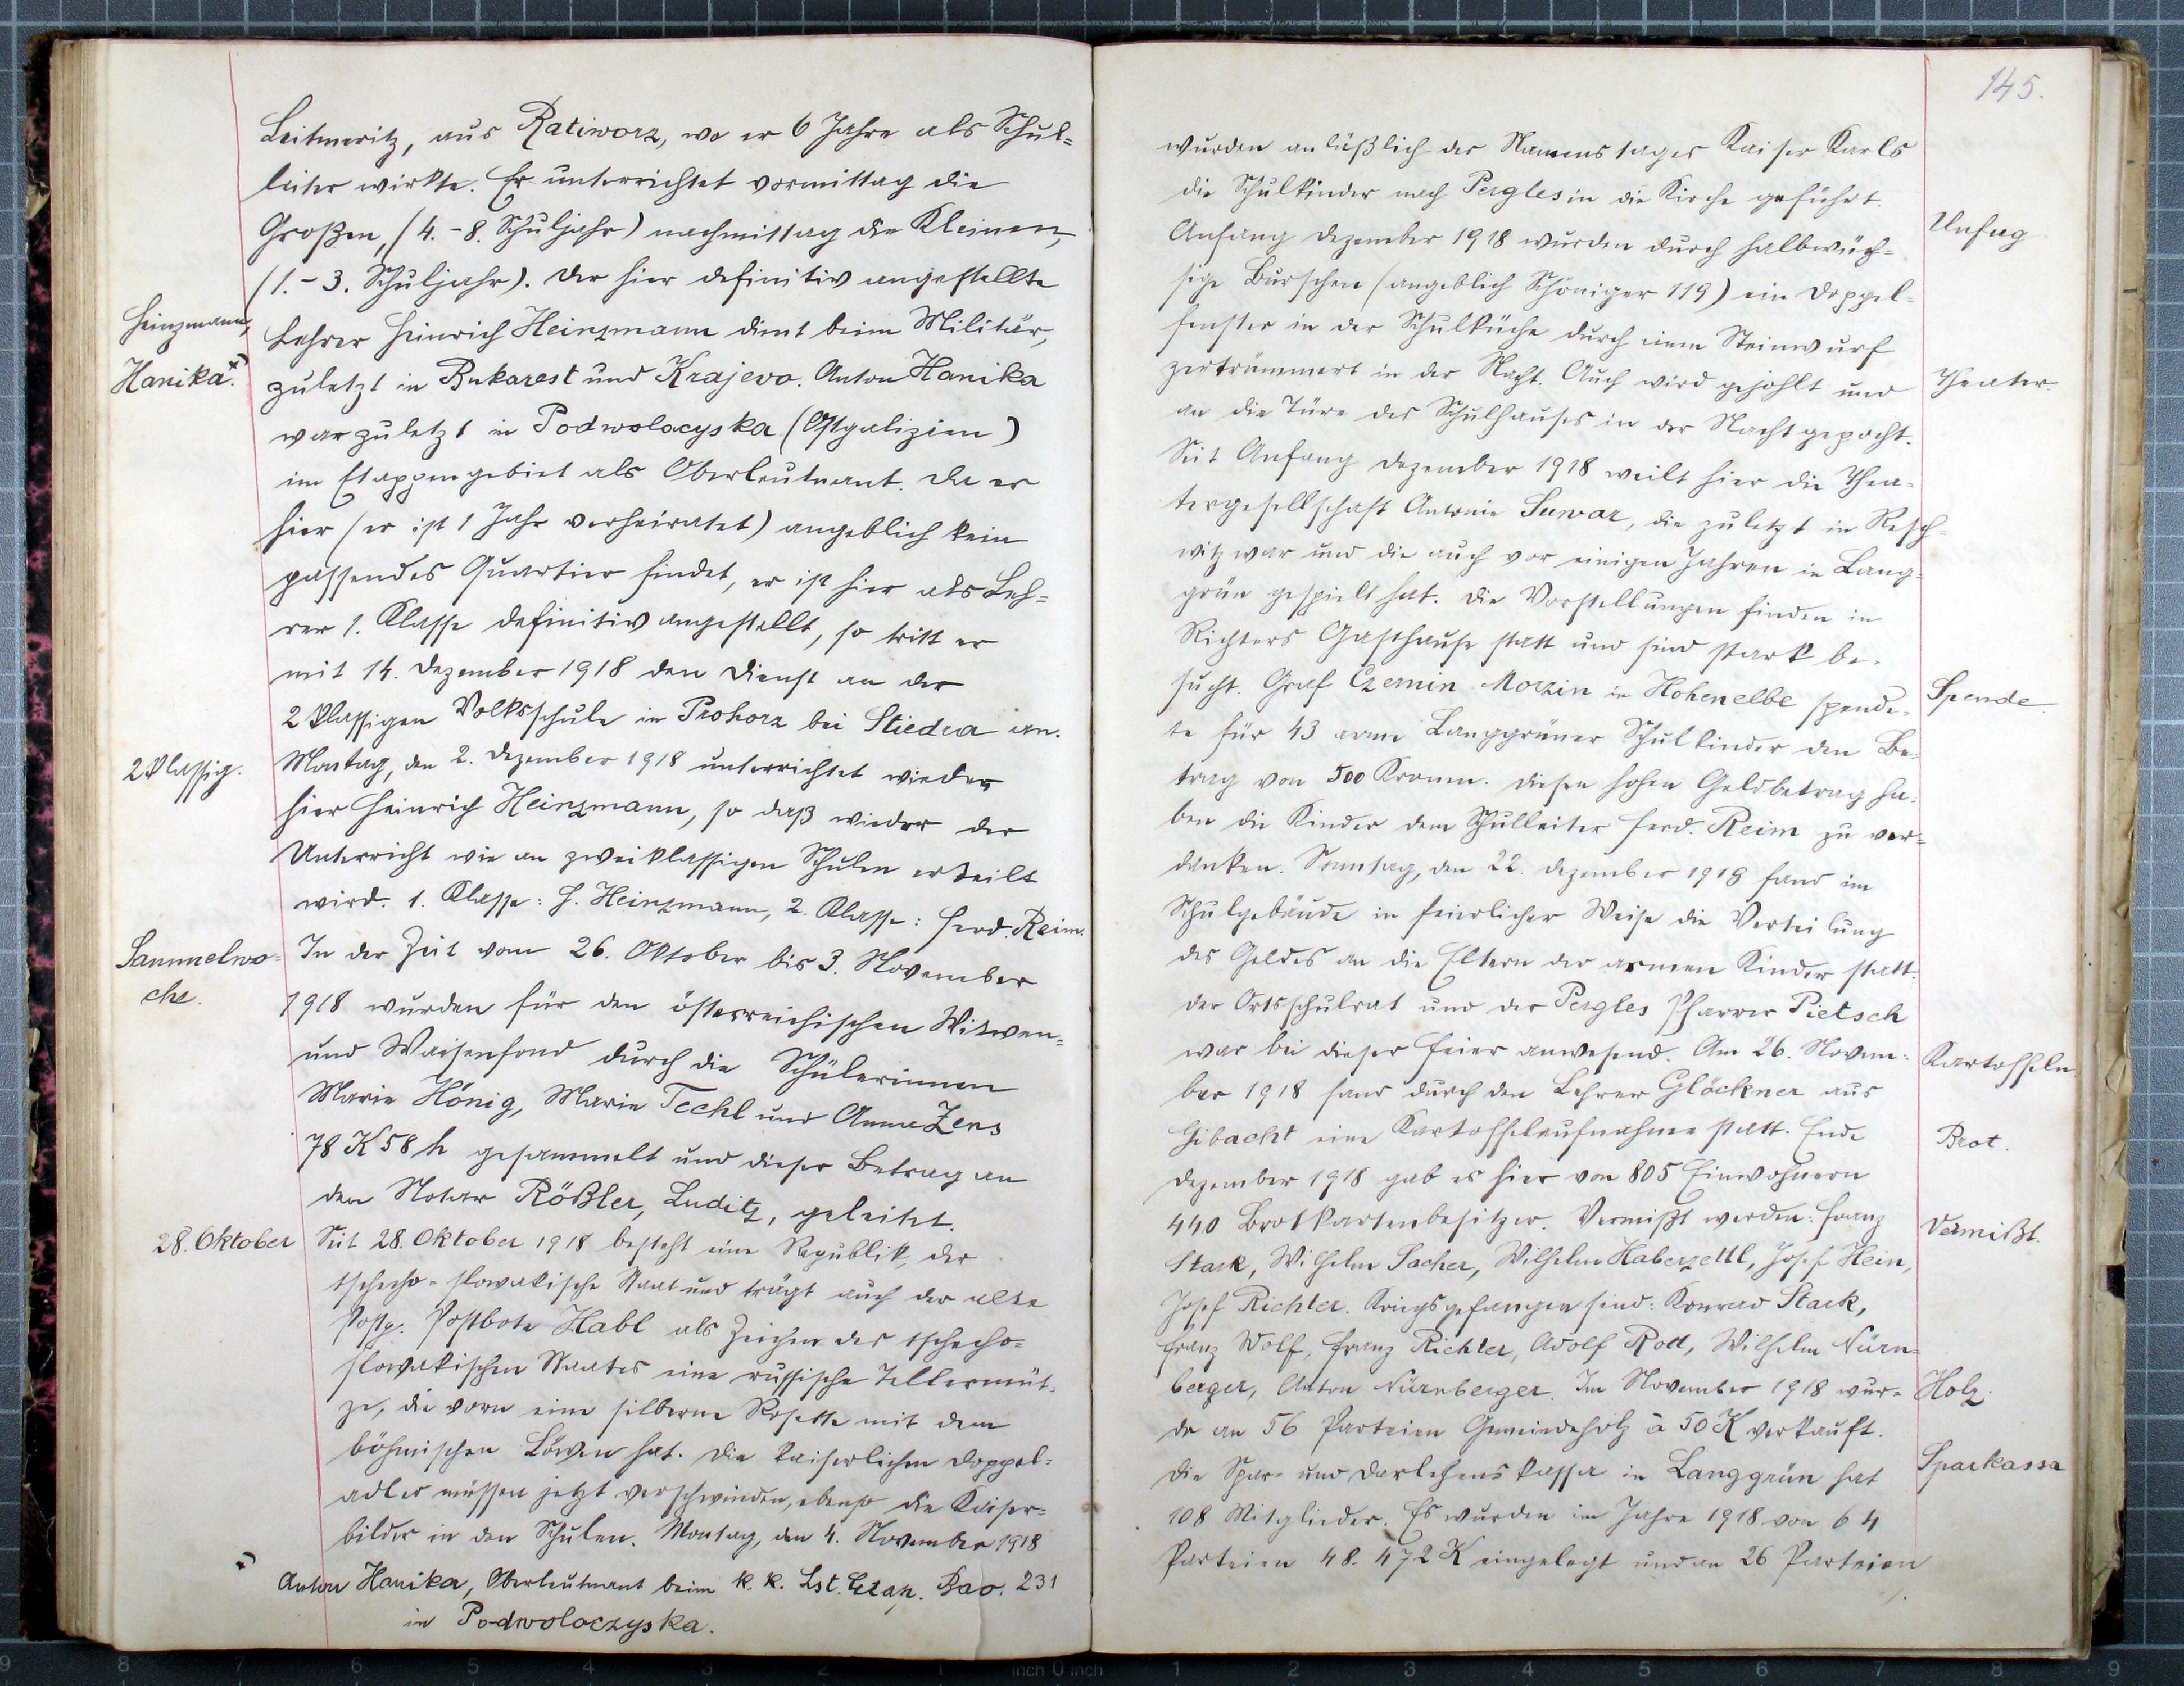 Leitmeritz, aus Ratiworz, wo er 6 Jahre als Schul-
leiter wirkte. Er unterrichtet vormittag die
Großen, (4.-8. Schuljahr) nachmittag die Kleinen,
(1.-3. Schuljahr). Der hier definitiv angestellte
Heinzmann,
Lehrer Heinrich Heinzmann dient beim Militär,
Hanika*).
zuletzt in Bukarest und Krajevo. Anton Hanika
war zuletzt in Podwolocyska (Ostgalizien)
im Etappengebiet als Oberleutnant. Da er
hier (er ist 1 Jahr verheiratet) angeblich kein
passendes Quartier findet, er ist hier als Leh-
rer 1. Klasse definitiv angestellt, so tritt er
mit 14. Dezember 1918 den Dienst an der
2 klassigen Volksschule in Prohorz bei Stiedra an.
2 klassig.
Montag, den 2. Dezember 1918 unterrichtet wieder
hier Heinrich Heinzmann, so daß wieder der
Unterricht wie an zweiklassigen Schulen erteilt
wird. 1. Klasse: H. Heinzmann, 2. Klasse: Ferd. Reim.
Sammelwo-
che.
In der Zeit vom 26. Oktober bis 3. November
1918 wurden für den österreichischen Witwen-
und Waisenfond durch die Schülerinnen
Marie Hönig, Marie Techl und Anna Zens
78 K 58 h gesammelt und dieser Betrag an
den Notar Rößler, Luditz, geleitet.
28. Oktober
Seit 28. Oktober 1918 besteht eine Republik, der
tschecho-slowakische Staat und trägt auch der alte
Postbote Habl als Zeichen des tschecho-
slowakischen Staates eine russische Tellermüt-
ze, die vorn eine silberne Rosette mit dem
böhmischen Löwen hat. Die kaiserlichen Doppel-
adler müssen jetzt verschwinden, ebenso die Kaiser-
bilder in den Schulen. Montag, den 4. November 1918
*)
Anton Hanika, Oberleutnant beim k. k. Lst. Etap. Bao. 231
in Podwoloczyska.
145.
wurden anläßlich des Namenstages Kaiser Karls
die Schulkinder nach Pergles in die Kirche geführt.
Unfug
Anfang Dezember 1918 wurden durch halbwüch-
sige Burschen (angeblich Schöniger 119) ein Doppel-
fenster in der Schulküche durch einen Steinwurf
zertrümmert in der Nacht. Auch wird gejohlt und
an die Türe des Schulhauses in der Nacht gepocht.
Theater.
Seit Anfang Dezember 1918 weilt hier die Thea-
tergesellschaft Antonie Suwar, die zuletzt in Resch-
witz war und die auch vor einigen Jahren in Lang-
grün gespielt hat. Die Vorstellungen finden in
Richters Gasthause statt und sind stark be-
sucht. Graf Czernin-Morzin in Hohenelbe spende-
Spende
te für 43 arme Langgrüner Schulkinder den Be-
trag von 500 Kronen. Diesen hohen Geldbetrag ha-
ben die Kinder dem Schulleiter Ferd. Reim zu ver-
danken. Sonntag, den 22. Dezember 1918 fand im
Schulgebäude in feierlicher Weise die Verteilung
des Geldes an die Eltern der armen Kinder statt.
Der Ortsschulrat und der Pergles Pfarrer Pietsch
war bei dieser Feier anwesend. Am 26. Novem-
Kartoffeln
ber 1918 fand durch den Lehrer Glöckner aus
Gibacht eine Kartoffelaufnahme statt. Ende
Brot.
Dezember 1918 gab es hier von 805 Einwohnern
440 Brotkartenbesitzer. Vermißt werden: Franz
Vermißt.
Stark, Wilhelm Sacher, Wilhelm Haberzettl, Josef Hein,
Josef Richter. Kriegsgefangen sind: Konrad Stark,
Franz Wolf, Franz Richter, Adolf Rott, Wilhelm Nürn-
berger, Anton Nürnberger. Im November 1918 wur-
Holz.
de an 56 Parteien Gemeindeholz à 50 K verkauft.
Die Spar- und Darlehenskassa in Langgrün hat
Sparkassa
108 Mitglieder. Es wurden im Jahre 1918 von 64
Parteien 48.472 K eingelegt und an 26 Parteien